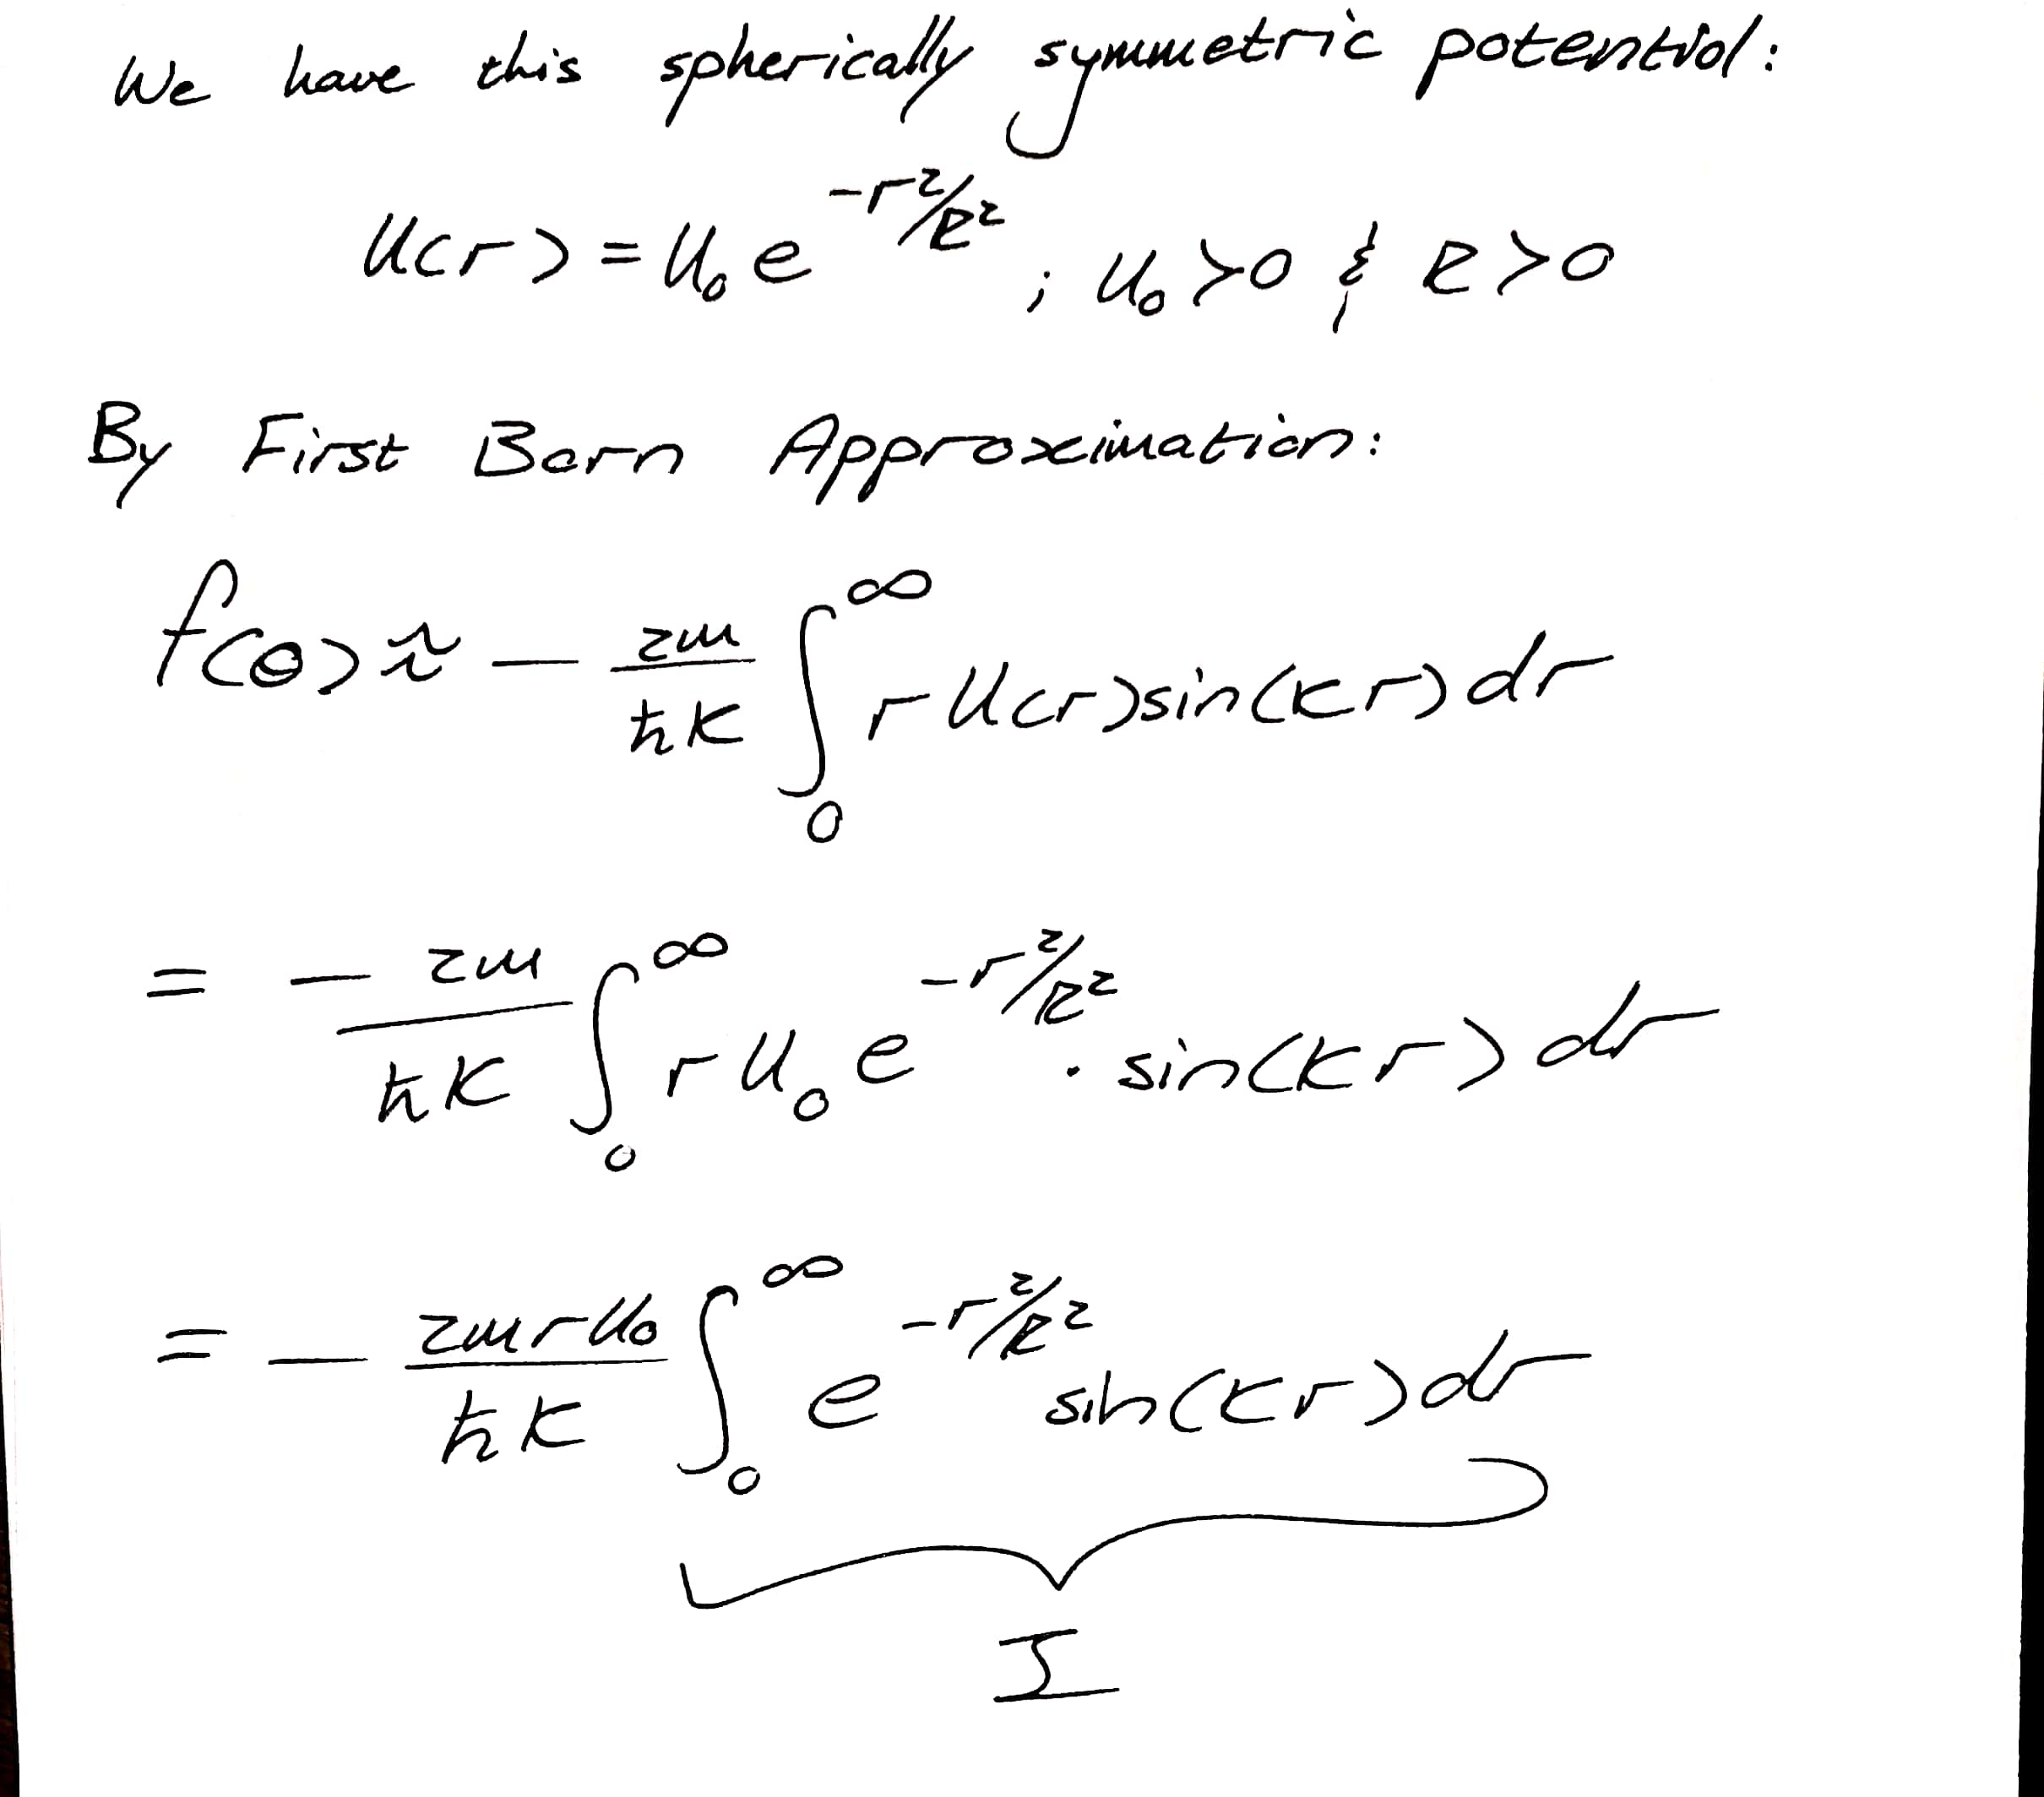 We have this spherically symmetric potential:
U(r) = U₀ e^{-r²/R²} ; U₀ > 0 & R > 0
By First Born Approximation:
f(θ) ≈ - 2m/ħK ∫₀^∞ r U(r) sin(Kr) dr
= - 2m/ħK ∫₀^∞ r U₀ e^{-r²/R²} · sin(Kr) dr
= - 2mrU₀/ħK ∫₀^∞ e^{-r²/R²} sin(Kr) dr
I